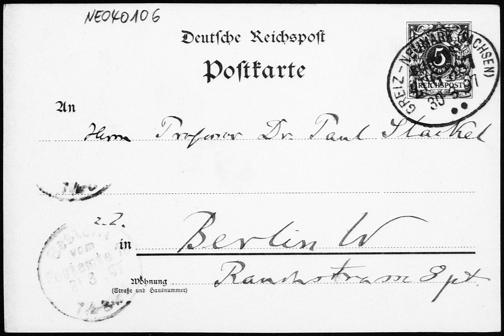 NE040106
Deutsche Reichspost
Postkarte
GREIZ-NEUMARK (SACHSEN)
5
REICHSPOST
30
An
Herrn Professor Dr. Paul Stäckel
z. Z.
in Berlin W
vom
Wohnung
(Straße und Hausnummer)
Rauchstrasse 8 pt.